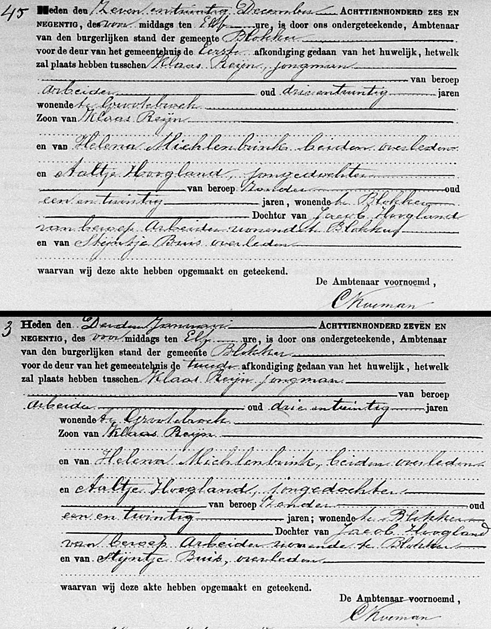 45 Heden den Zeven en twintig December ACHTTIENHONDERD ZES EN
NEGENTIG, des voor middags ten Elf ure, is door ons ondergeteekende, Ambtenaar
van den burgerlijken stand der gemeente Blokker
voor de deur van het gemeentehuis de Eerste afkondiging gedaan van het huwelijk, hetwelk
zal plaats hebben tusschen Klaas Reijn, jongman
van beroep
arbeider oud drie en twintig jaren
wonende te Grootebroek
Zoon van Klaas Reijn
en van Helena Michlenbrink, beiden overleden
en Aaltje Hoogland, jongedochter
van beroep Zonder oud
een en twintig jaren, wonende te Blokker
Dochter van Jacob Hoogland
van beroep Arbeider wonende te Blokker
en van Stijntje Buis overleden
waarvan wij deze akte hebben opgemaakt en geteekend.
De Ambtenaar voornoemd,
C Koeman
3 Heden den Derden Januarij ACHTTIENHONDERD ZEVEN EN
NEGENTIG, des voor middags ten Elf ure, is door ons ondergeteekende, Ambtenaar
van den burgerlijken stand der gemeente Blokker
voor de deur van het gemeentehuis de tweede afkondiging gedaan van het huwelijk, hetwelk
zal plaats hebben tusschen Klaas Reijn Jongman
van beroep
arbeider oud drie en twintig jaren
wonende te Grootebroek
Zoon van Klaas Reijn
en van Helena Michlenbrink, beiden overleden
en Aaltje Hoogland, jongedochter
van beroep Zonder oud
een en twintig jaren; wonende te Blokker
Dochter van Jacob Hoogland
van beroep Arbeider wonende te Blokker
en van Stijntje Buis, overleden
waarvan wij deze akte hebben opgemaakt en geteekend.
De Ambtenaar voornoemd,
C Koeman